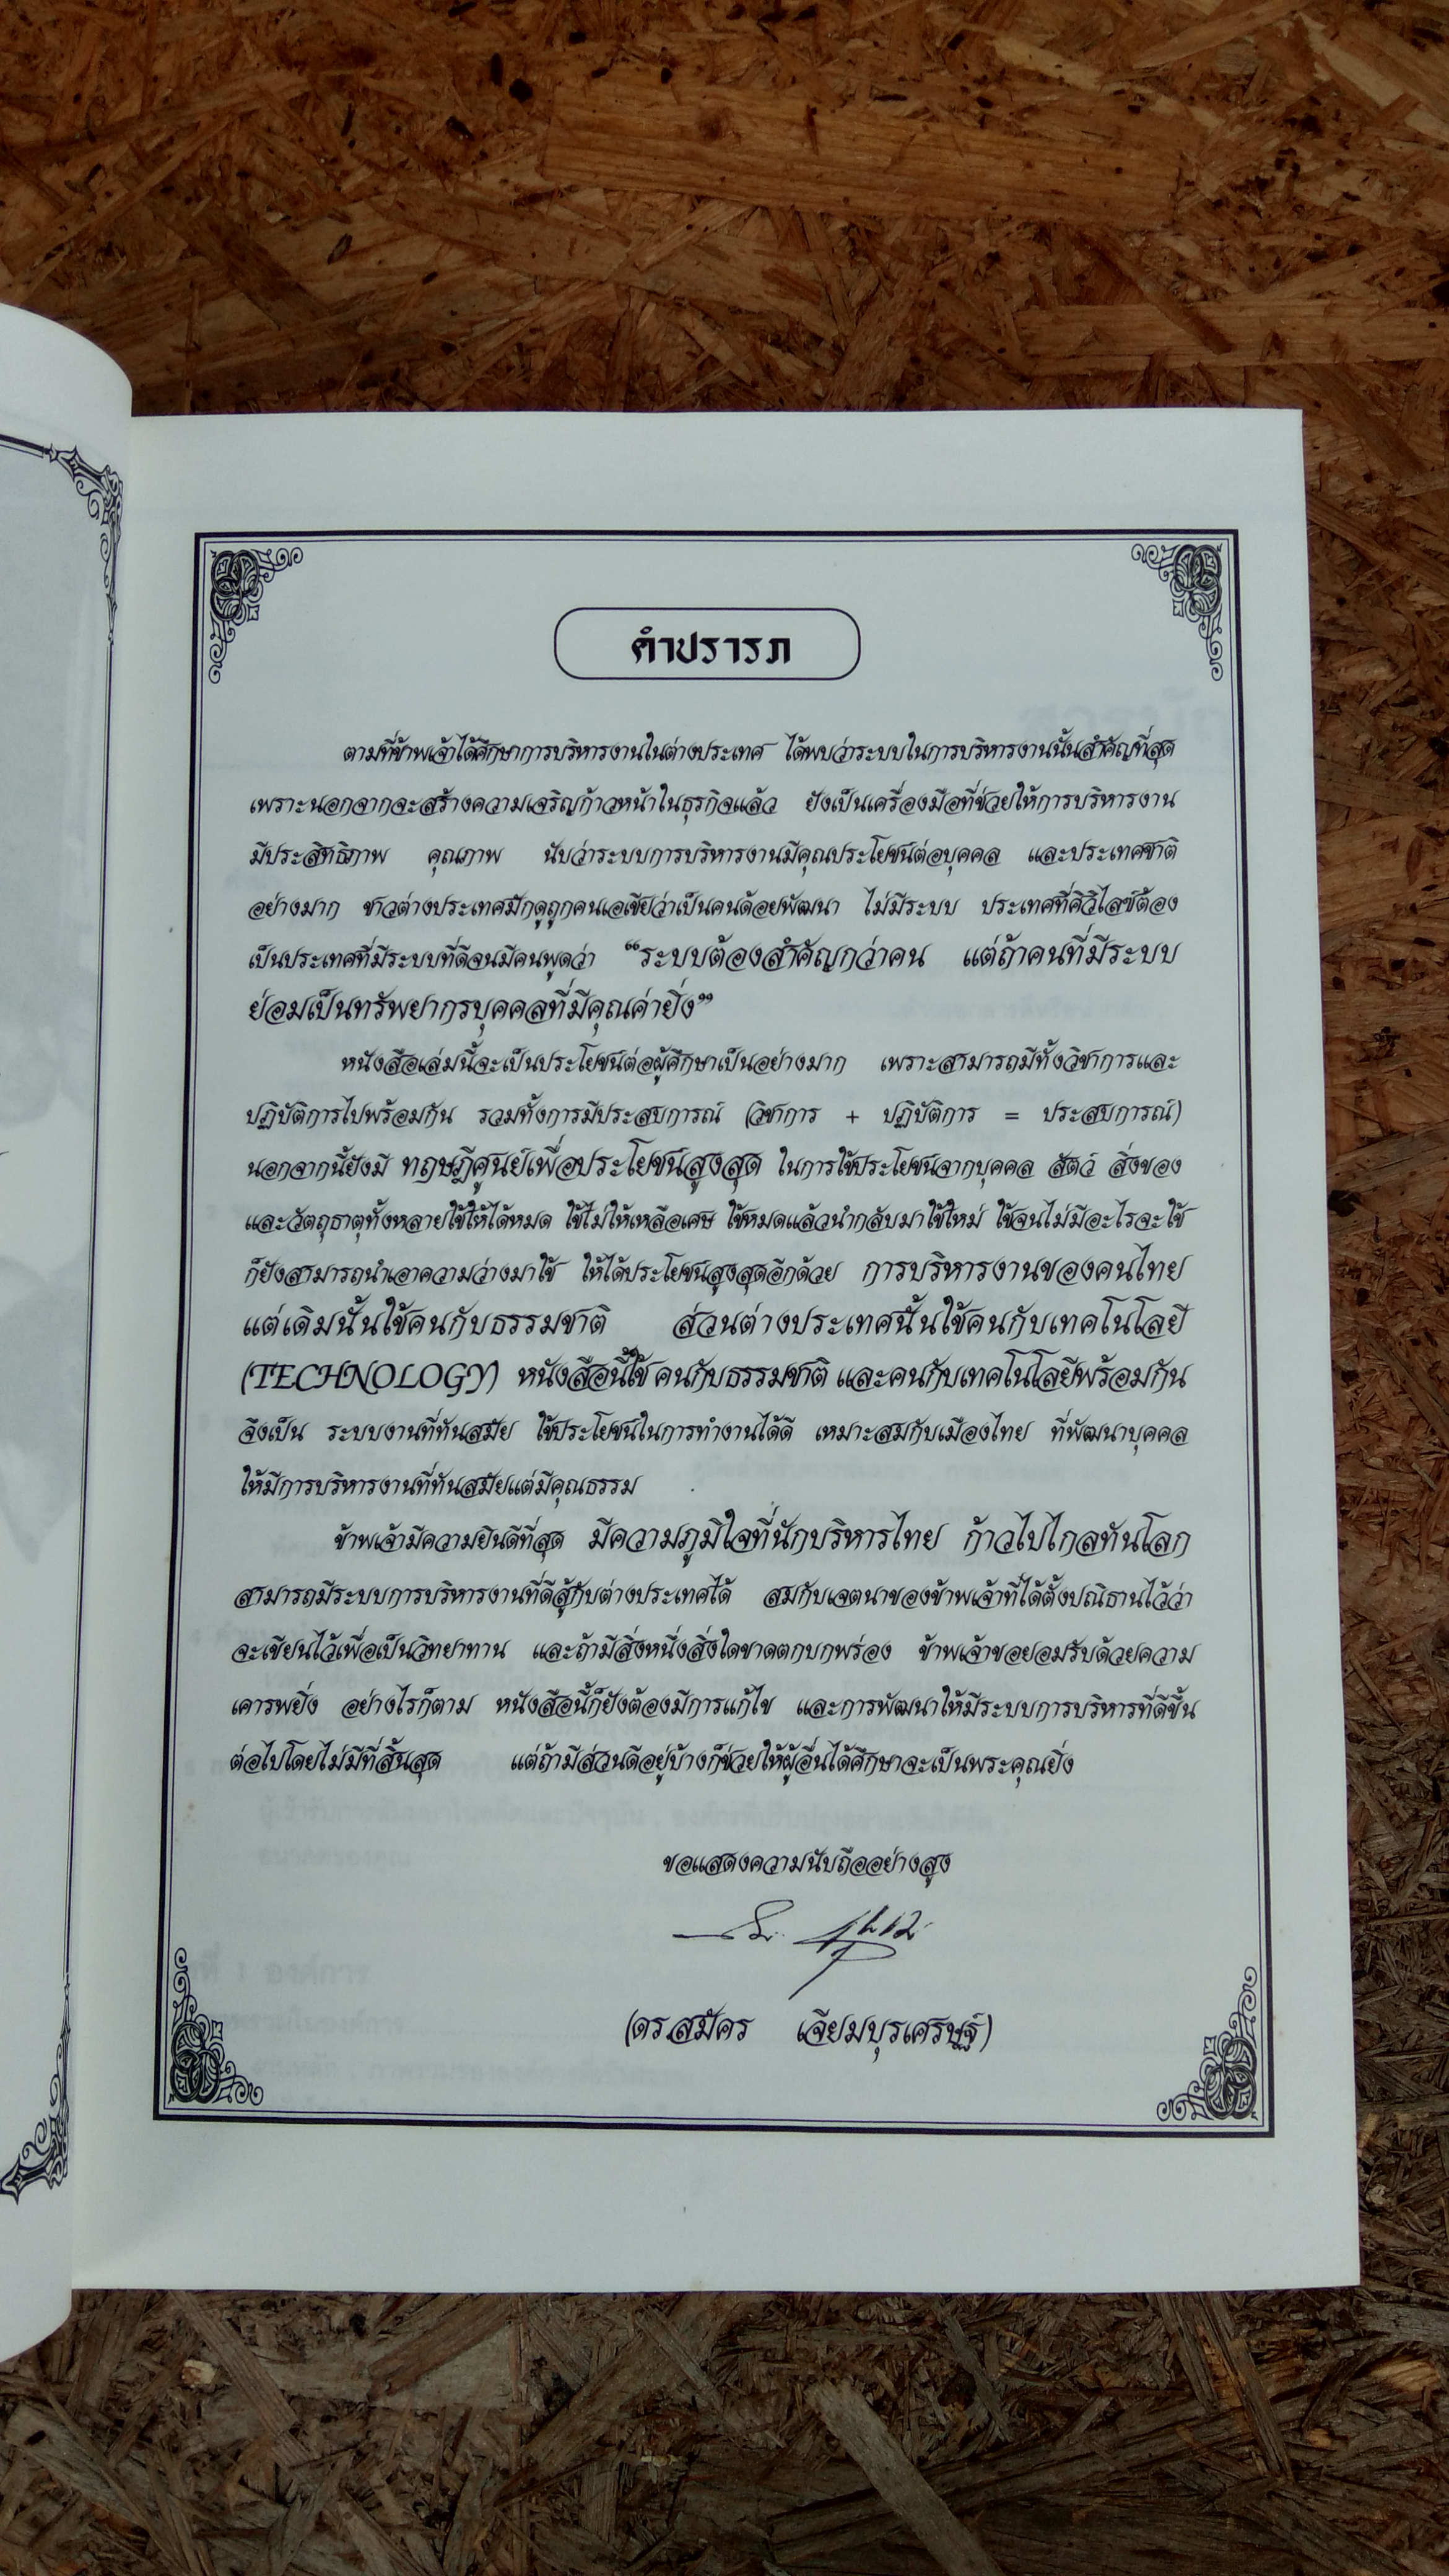 คำปรารภ
ตามที่ข้าพเจ้าได้ศึกษาการบริหารงานในต่างประเทศ ได้พบว่าระบบในการบริหารงานนั้นสำคัญที่สุด
เพราะนอกจากจะสร้างความเจริญก้าวหน้าในธุรกิจแล้ว ยังเป็นเครื่องมือที่ช่วยให้การบริหารงาน
มีประสิทธิภาพ คุณภาพ นับว่าระบบการบริหารงานมีคุณประโยชน์ต่อบุคคล และประเทศชาติ
อย่างมาก ชาวต่างประเทศมักดูถูกคนเอเชียว่าเป็นคนด้อยพัฒนา ไม่มีระบบ ประเทศที่ศิวิไลซ์ต้อง
เป็นประเทศที่มีระบบที่ดีจนมีคนพูดว่า “ระบบต้องสำคัญกว่าคน แต่ถ้าคนที่มีระบบ
ย่อมเป็นทรัพยากรบุคคลที่มีคุณค่ายิ่ง”
หนังสือเล่มนี้จะเป็นประโยชน์ต่อผู้ศึกษาเป็นอย่างมาก เพราะสามารถมีทั้งวิชาการและ
ปฏิบัติการไปพร้อมกัน รวมทั้งการมีประสบการณ์ (วิชาการ + ปฏิบัติการ = ประสบการณ์)
นอกจากนี้ยังมี ทฤษฎีศูนย์เพื่อประโยชน์สูงสุด ในการใช้ประโยชน์จากบุคคล สัตว์ สิ่งของ
และวัตถุธาตุทั้งหลายใช้ให้ได้หมด ใช้ไม่ให้เหลือเศษ ใช้หมดแล้วนำกลับมาใช้ใหม่ ใช้จนไม่มีอะไรจะใช้
ก็ยังสามารถนำเอาความว่างมาใช้ ให้ได้ประโยชน์สูงสุดอีกด้วย การบริหารงานของคนไทย
แต่เดิมนั้นใช้คนกับธรรมชาติ ส่วนต่างประเทศนั้นใช้คนกับเทคโนโลยี
(TECHNOLOGY) หนังสือนี้ใช้ คนกับธรรมชาติ และคนกับเทคโนโลยีพร้อมกัน
จึงเป็น ระบบงานที่ทันสมัย ใช้ประโยชน์ในการทำงานได้ดี เหมาะสมกับเมืองไทย ที่พัฒนาบุคคล
ให้มีการบริหารงานที่ทันสมัยแต่มีคุณธรรม
ข้าพเจ้ามีความยินดีที่สุด มีความภูมิใจที่นักบริหารไทย ก้าวไปไกลทันโลก
สามารถมีระบบการบริหารงานที่ดีสู้กับต่างประเทศได้ สมกับเจตนาของข้าพเจ้าที่ได้ตั้งปณิธานไว้ว่า
จะเขียนไว้เพื่อเป็นวิทยาทาน และถ้ามีสิ่งหนึ่งสิ่งใดขาดตกบกพร่อง ข้าพเจ้าขอยอมรับด้วยความ
เคารพยิ่ง อย่างไรก็ตาม หนังสือนี้ก็ยังต้องมีการแก้ไข และการพัฒนาให้มีระบบการบริหารที่ดีขึ้น
ต่อไปโดยไม่มีที่สิ้นสุด แต่ถ้ามีส่วนดีอยู่บ้างก็ช่วยให้ผู้อื่นได้ศึกษาจะเป็นพระคุณยิ่ง
ขอแสดงความนับถืออย่างสูง
(ดร.สมัคร เจียมบุรเศรษฐ์)